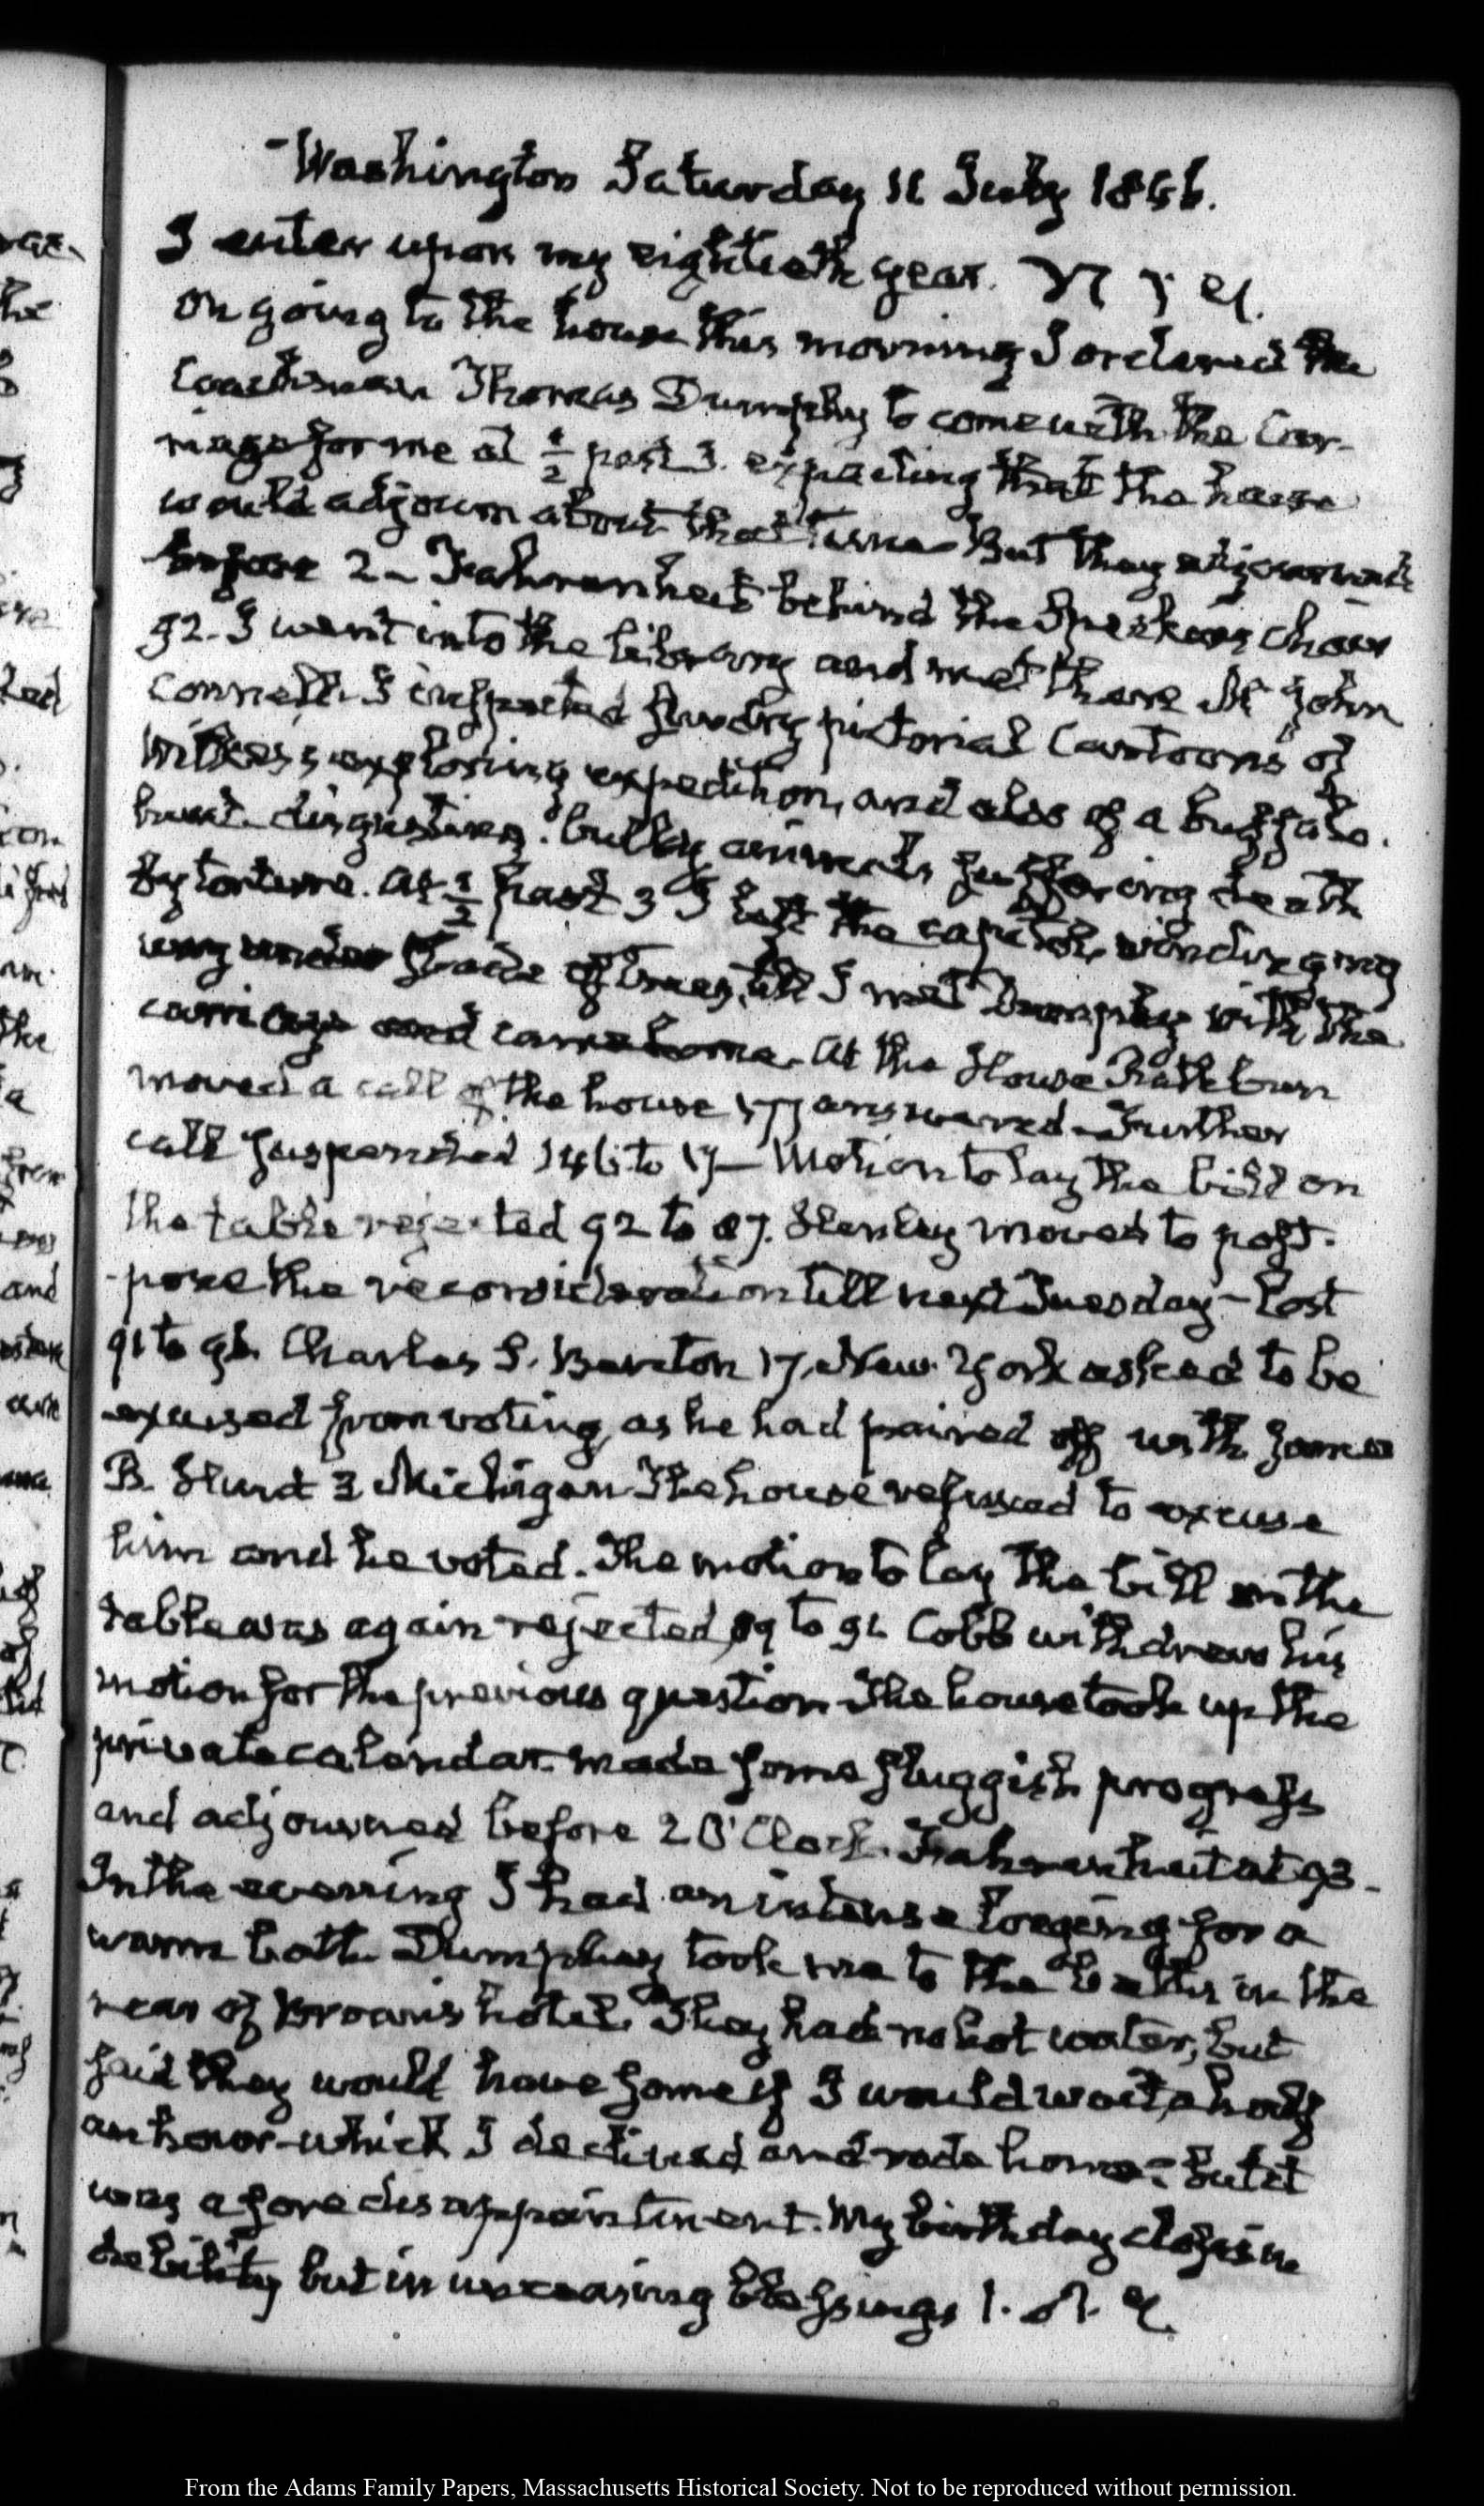 Washington Saturday 11 July 1846.
I enter upon my eightieth year.
On going to the house this morning I ordered the
Coachman Thomas Dumphy to come with the Car-
riage for me at ½ past 3. expecting that the house
would adjourn about that time. But they adjourned
before 2 — Fahrenheit behind the Speakers chair
92. I went into the library and met there Mr John
Connell. I inspected sundry pictorial Cartoons of
Wilkes's exploring expedition, and also of a buffalo.
hunt. disgusting. bulky animals suffering death
by torture. At ½ past 3 I left the capitol, winding my
way under shade of trees, till I met Dumphy with the
carriage and came home. At the House Rathbun
moved a call of the house 177 answered. Further
call suspended 146 to 17 — Motion to lay the bill on
the table rejected 92 to 87. Henley moved to post-
pone the reconsideration till next Tuesday — Lost
91 to 96. Charles S. Benton 17. New York asked to be
excused from voting, as he had paired off with James
B. Hunt 3 Michigan. The house refused to excuse
him and he voted. The motion to lay the bill on the
table was again rejected 89 to 91 Cobb withdrew his
motion for the previous question. The house took up the
private calendar. made some sluggish progress
and adjourned before 2 O'Clock. Fahrenheit at 93.
In the evening I had an intense longing for a
warm bath. Dumphy took me to the baths in the
rear of Brown's hotel. They had no hot water, but
said they would have some if I would wait half
an hour — which I declined and rode home: but it
was a sore disappointment. My birthday closes in
debility but in unceasing blessings
From the Adams Family Papers, Massachusetts Historical Society. Not to be reproduced without permission.